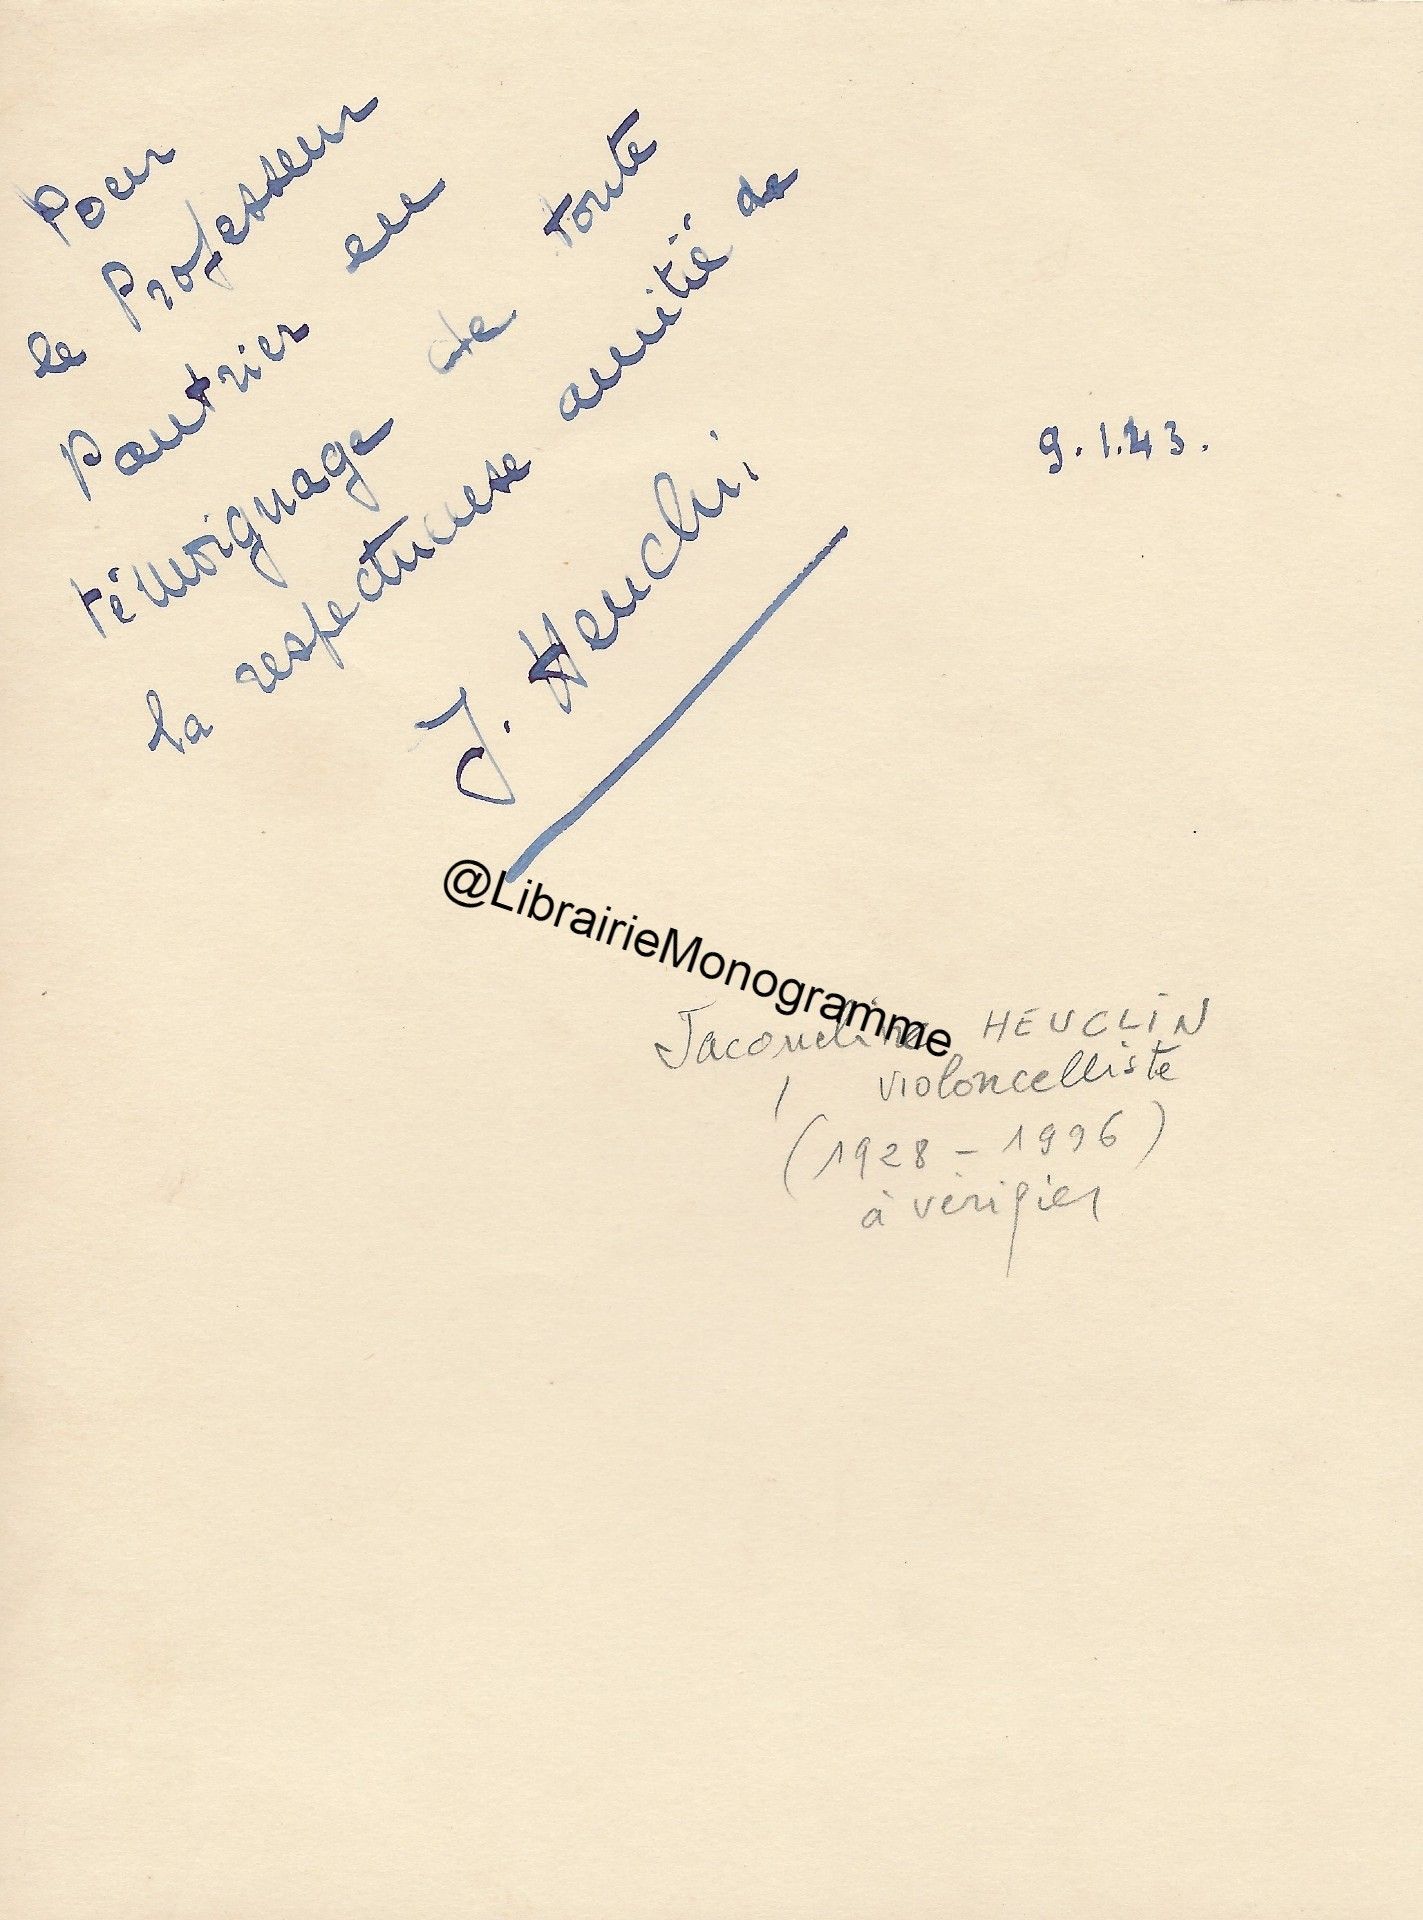 Pour
le Professeur
Pautrier en
témoignage de toute
la respectueuse amitié de
J. Heuclin.
9.1.43.
@LibrairieMonogramme
Jacqueline HEUCLIN
violoncelliste
(1928 - 1996)
à vérifier